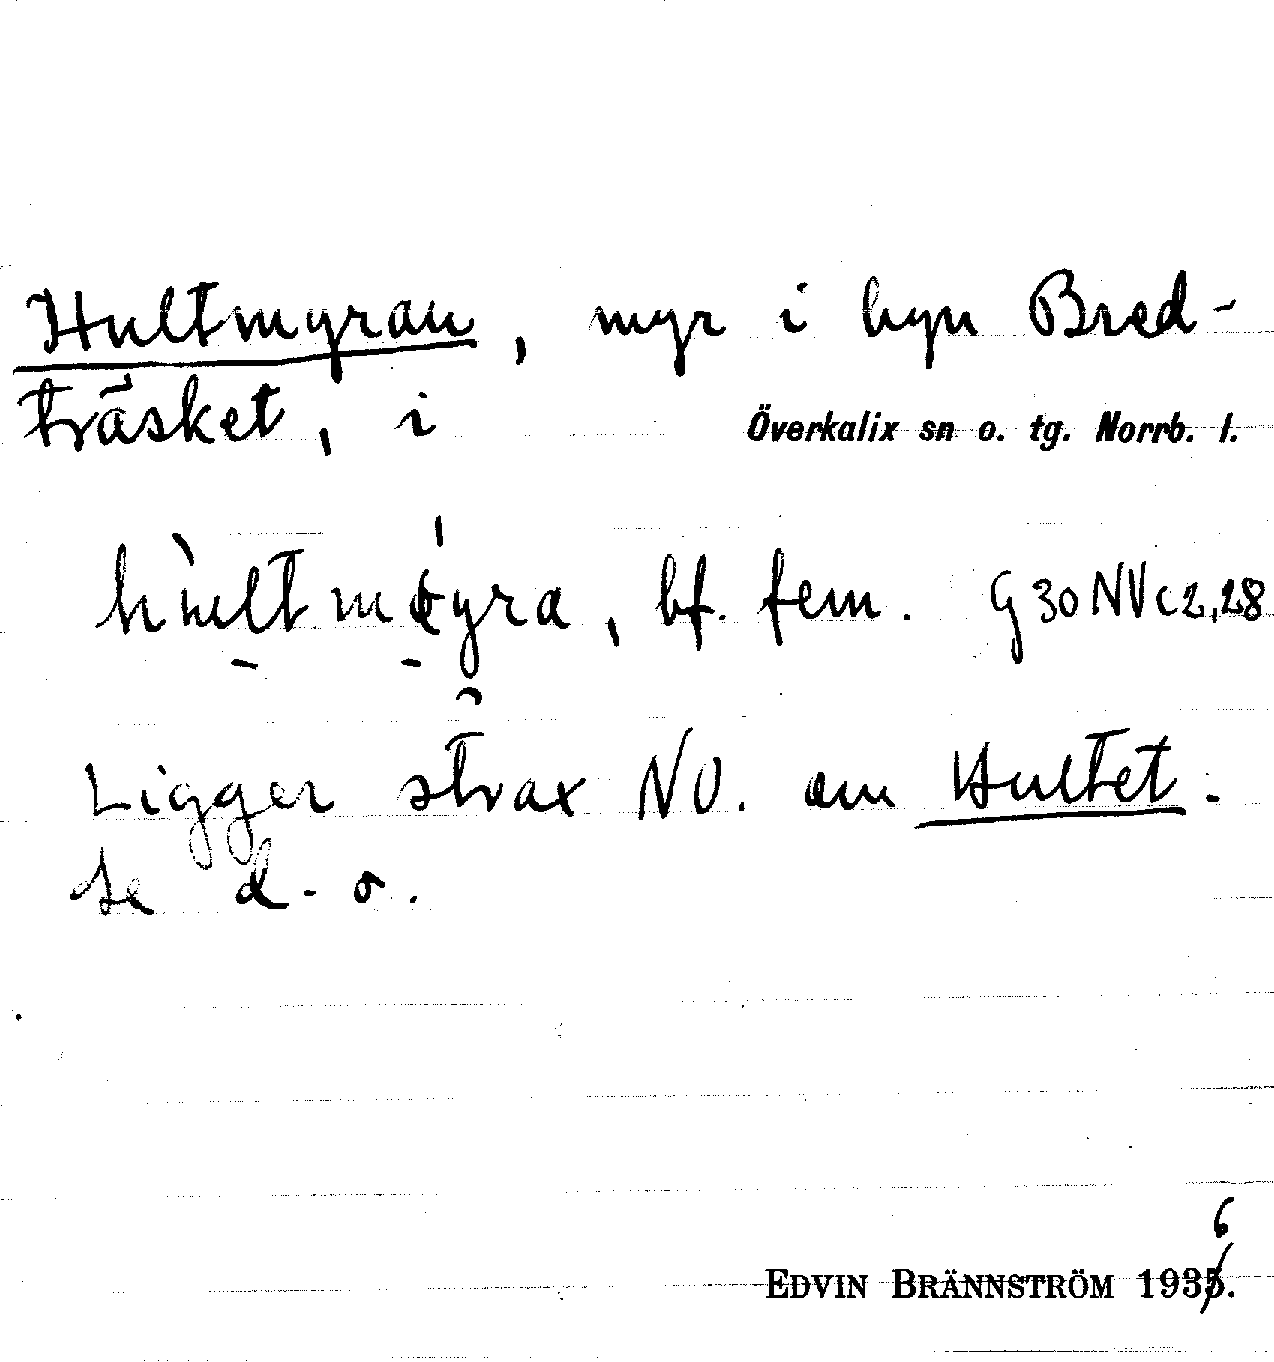 Hultmyran, myr i byn Bred-
träsket, i Överkalix sn o. tg. Norrb. l.
bf. fem. G30NVc2,28
Ligger strax NO. om Hultet.
Se d. o.
6
EDVIN BRÄNNSTRÖM 1935.